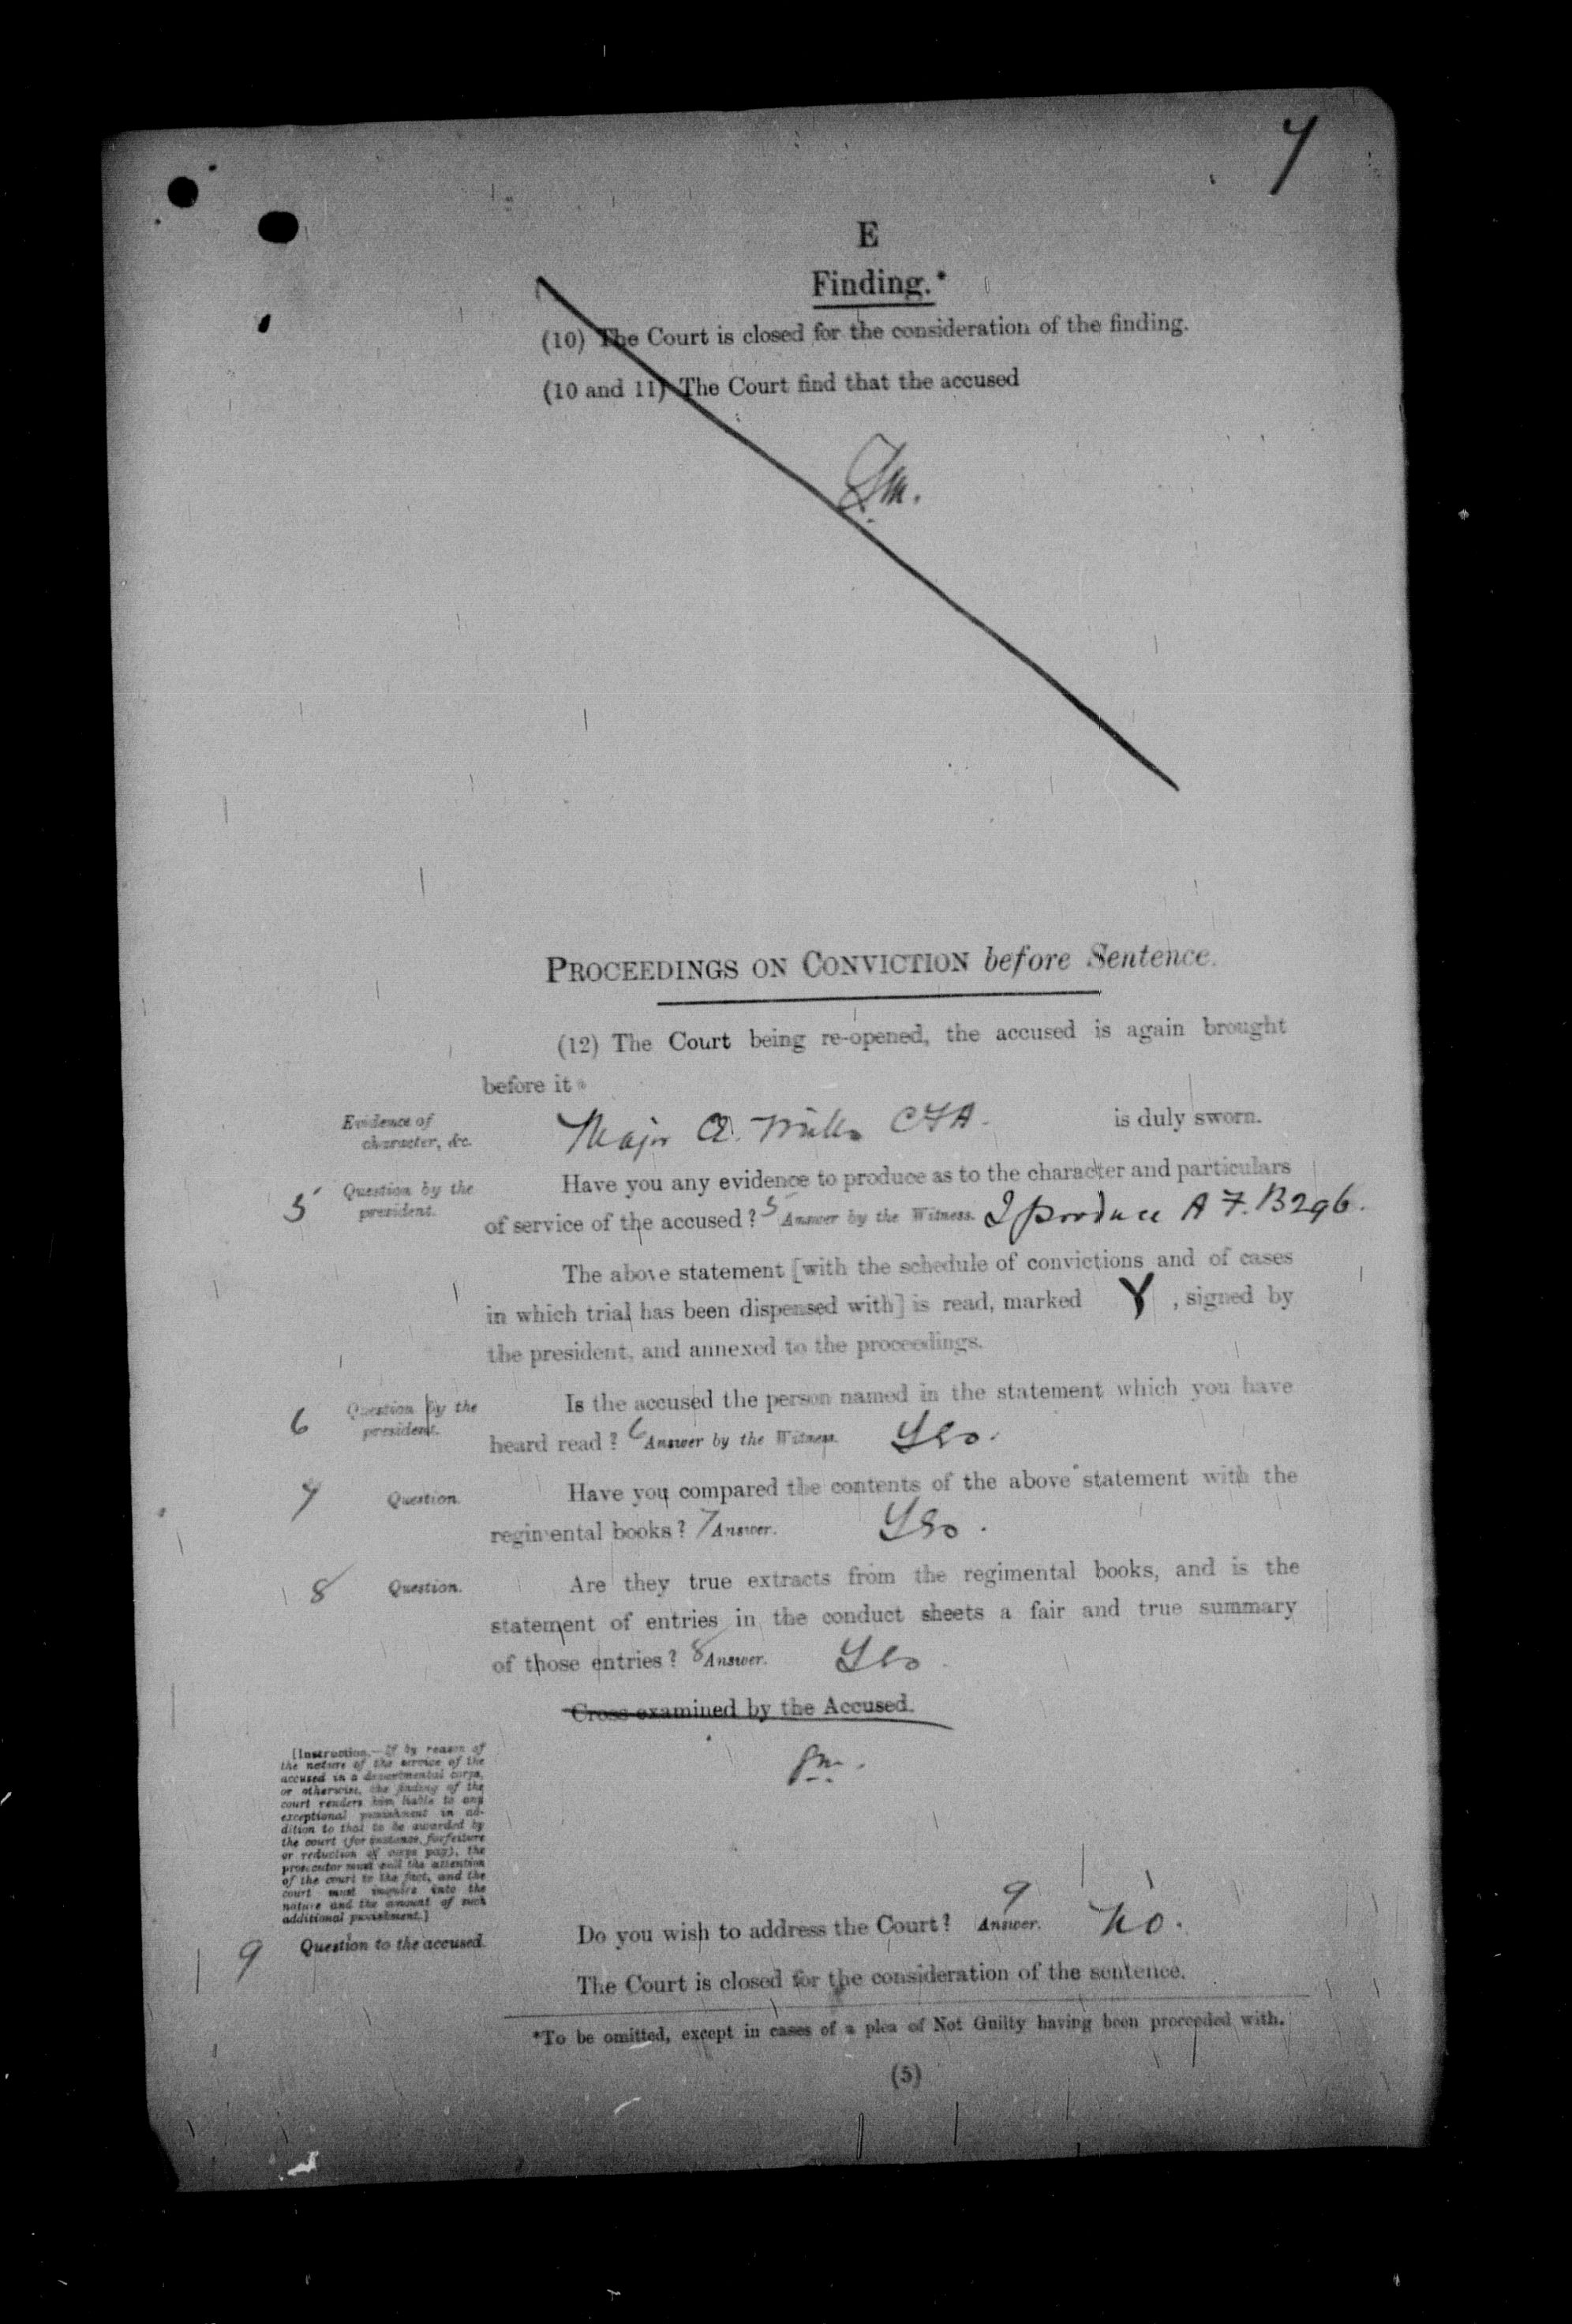 7
E
Finding.*
(10) The Court is closed for the consideration of the finding.
(10 and 11) The Court find that the accused
PROCEEDINGS ON CONVICTION before Sentence.
(12) The Court being re-opened, the accused is again brought
before it
Evidence of
character, &c.
Major CFA. is duly sworn.
5 Question by the
president.
Have you any evidence to produce as to the character and particulars
of service of the accused? 5 Answer by the Witness. I produce A F. B296.
The above statement [with the schedule of convictions and of cases
in which trial has been dispensed with] is read, marked Y, signed by
the president, and annexed to the proceedings.
6 Question by the
president.
Is the accused the person named in the statement which you have
heard read? 6 Answer by the Witness. Yes.
7 Question.
Have you compared the contents of the above statement with the
regimental books? 7 Answer. Yes.
8 Question.
Are they true extracts from the regimental books, and is the
statement of entries in the conduct sheets a fair and true summary
of those entries? 8 Answer. Yes
Cross-examined by the Accused.
[Instruction.—If by reason of
the nature of the service of the
accused in a departmental corps,
or otherwise, the finding of the
court renders him liable to any
exceptional punishment in ad-
dition to that to be awarded by
the court (for instance, forfeiture
or reduction of corps pay), the
prosecutor must call the attention
of the court to the fact, and the
court must inquire into the
nature and the amount of such
additional punishment.]
9 Question to the accused.
Do you wish to address the Court? 9 Answer. No.
The Court is closed for the consideration of the sentence.
*To be omitted, except in cases of a plea of Not Guilty having been proceeded with.
(5)